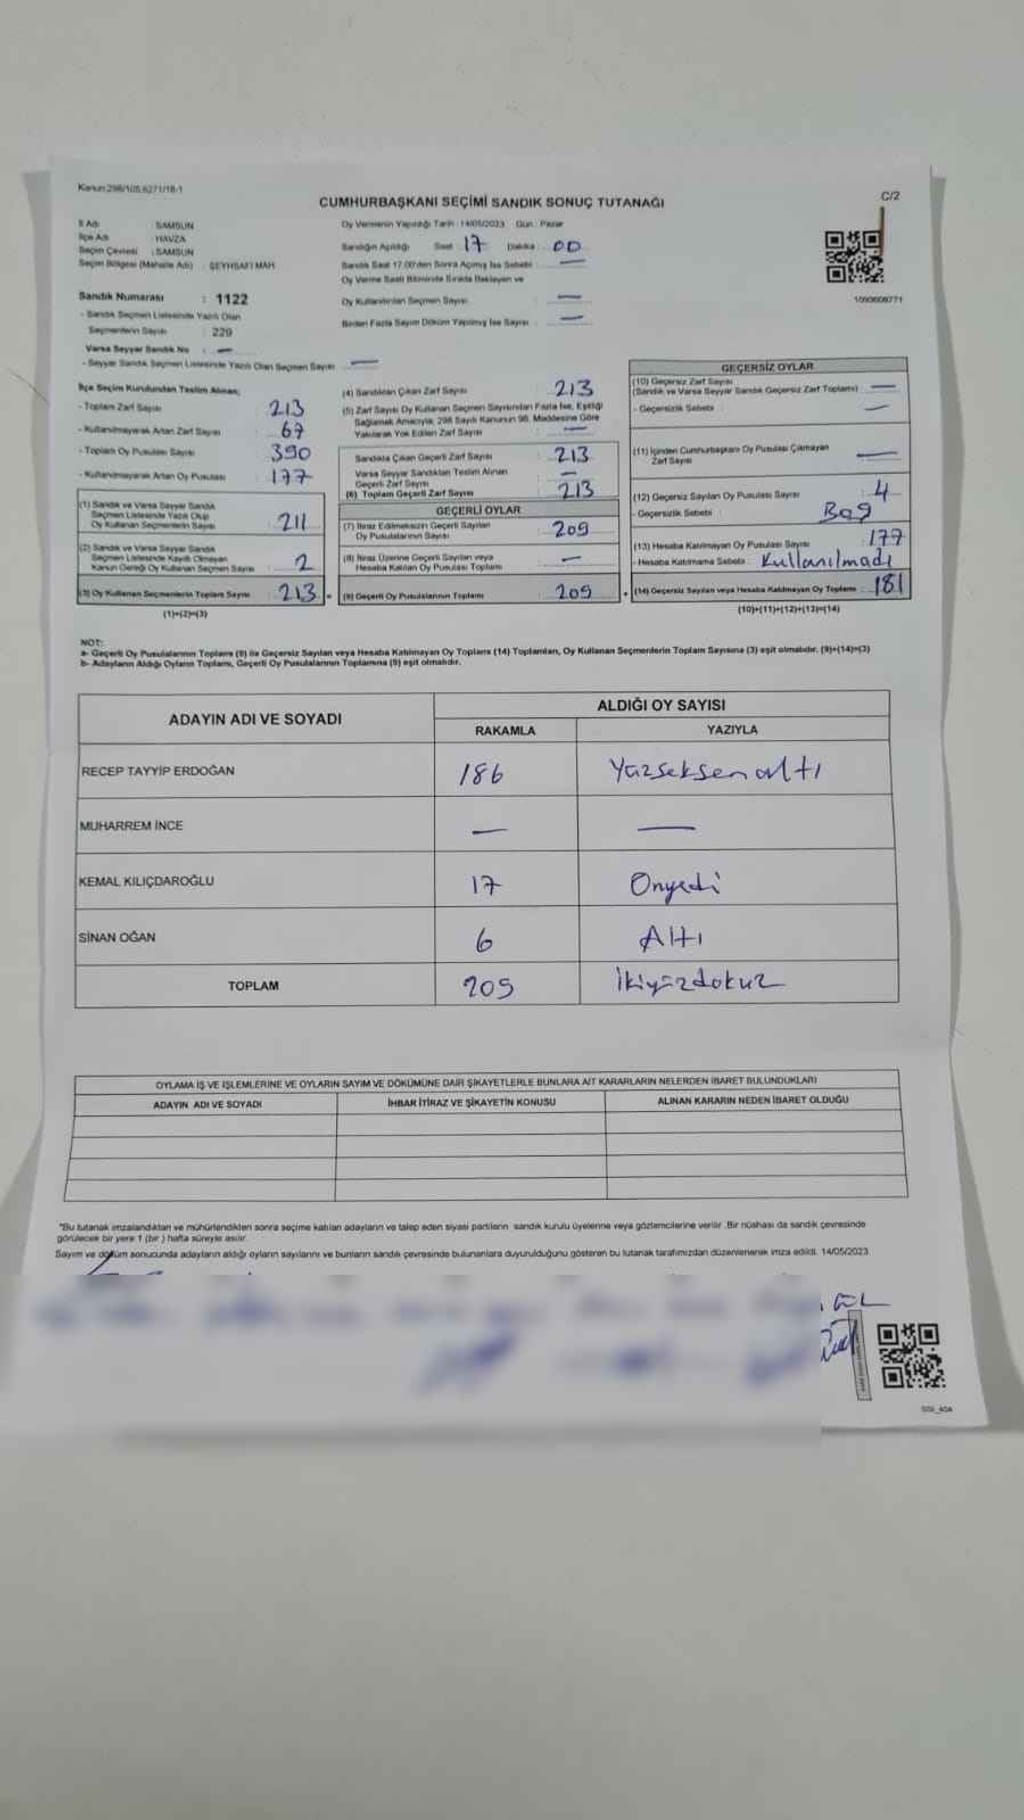 Kanun:298/105,6271/18-1
CUMHURBAŞKANI SEÇİMİ SANDIK SONUÇ TUTANAĞI
C/2
İl Adı : SAMSUN
İlçe Adı : HAVZA
Seçim Çevresi : SAMSUN
Seçim Bölgesi (Mahalle Adı) : ŞEYHSAFİ MAH.
Oy Vermenin Yapıldığı Tarih : 14/05/2023 Gün : Pazar
Sandığın Açıldığı Saat : 17 Dakika : 00
Sandık Saat 17.00'den Sonra Açılmış İse Sebebi : —
Oy Verme Saati Bitiminde Sırada Bekleyen ve
Oy Kullandırılan Seçmen Sayısı : —
Birden Fazla Sayım Döküm Yapılmış İse Sayısı : —
Sandık Numarası : 1122
- Sandık Seçmen Listesinde Yazılı Olan
Seçmenlerin Sayısı : 229
Varsa Seyyar Sandık No : —
- Seyyar Sandık Seçmen Listesinde Yazılı Olan Seçmen Sayısı : —
İlçe Seçim Kurulundan Teslim Alınan;
- Toplam Zarf Sayısı : 213
- Kullanılmayarak Artan Zarf Sayısı : 67
- Toplam Oy Pusulası Sayısı : 390
- Kullanılmayarak Artan Oy Pusulası : 177
(1) Sandık ve Varsa Seyyar Sandık
Seçmen Listesinde Yazılı Olup
Oy Kullanan Seçmenlerin Sayısı : 211
(2) Sandık ve Varsa Seyyar Sandık
Seçmen Listesinde Kayıtlı Olmayan
Kanun Gereği Oy Kullanan Seçmen Sayısı : 2
(3) Oy Kullanan Seçmenlerin Toplam Sayısı : 213
(1)+(2)=(3)
(4) Sandıktan Çıkan Zarf Sayısı : 213
(5) Zarf Sayısı Oy Kullanan Seçmen Sayısından Fazla İse, Eşitliği
Sağlamak Amacıyla, 298 Sayılı Kanunun 98. Maddesine Göre
Yakılarak Yok Edilen Zarf Sayısı : —
Sandıkta Çıkan Geçerli Zarf Sayısı : 213
Varsa Seyyar Sandıktan Teslim Alınan
Geçerli Zarf Sayısı : —
(6) Toplam Geçerli Zarf Sayısı : 213
GEÇERLİ OYLAR
(7) İtiraz Edilmeksizin Geçerli Sayılan
Oy Pusulalarının Sayısı : 209
(8) İtiraz Üzerine Geçerli Sayılan veya
Hesaba Katılan Oy Pusulası Toplamı : —
(9) Geçerli Oy Pusulalarının Toplamı : 209
1090606771
GEÇERSİZ OYLAR
(10) Geçersiz Zarf Sayısı
(Sandık ve Varsa Seyyar Sandık Geçersiz Zarf Toplamı) : —
- Geçersizlik Sebebi : —
(11) İçinden Cumhurbaşkanı Oy Pusulası Çıkmayan
Zarf Sayısı : —
(12) Geçersiz Sayılan Oy Pusulası Sayısı : 4
- Geçersizlik Sebebi : Boş
(13) Hesaba Katılmayan Oy Pusulası Sayısı : 177
- Hesaba Katılmama Sebebi : Kullanılmadı
(14) Geçersiz Sayılan veya Hesaba Katılmayan Oy Toplamı : 181
(10)+(11)+(12)+(13)=(14)
NOT:
a- Geçerli Oy Pusulalarının Toplamı (9) ile Geçersiz Sayılan veya Hesaba Katılmayan Oy Toplamı (14) Toplamları, Oy Kullanan Seçmenlerin Toplam Sayısına (3) eşit olmalıdır. (9)+(14)=(3)
b- Adayların Aldığı Oyların Toplamı, Geçerli Oy Pusulalarının Toplamına (9) eşit olmalıdır.
ADAYIN ADI VE SOYADI
ALDIĞI OY SAYISI
RAKAMLA YAZIYLA
RECEP TAYYİP ERDOĞAN 186 Yüzseksenaltı
MUHARREM İNCE — —
KEMAL KILIÇDAROĞLU 17 Onyedi
SİNAN OĞAN 6 Altı
TOPLAM 209 İkiyüzdokuz
OYLAMA İŞ VE İŞLEMLERİNE VE OYLARIN SAYIM VE DÖKÜMÜNE DAİR ŞİKAYETLERLE BUNLARA AİT KARARLARIN NELERDEN İBARET BULUNDUKLARI
ADAYIN ADI VE SOYADI İHBAR İTİRAZ VE ŞİKAYETİN KONUSU ALINAN KARARIN NEDEN İBARET OLDUĞU
*Bu tutanak imzalandıktan ve mühürlendikten sonra seçime katılan adayların ve talep eden siyasi partilerin sandık kurulu üyelerine veya gözlemcilerine verilir .Bir nüshası da sandık çevresinde
görülecek bir yere 1 (bir ) hafta süreyle asılır.
Sayım ve döküm sonucunda adayların aldığı oyların sayılarını ve bunların sandık çevresinde bulunanlara duyurulduğunu gösteren bu tutanak tarafımızdan düzenlenerek imza edildi. 14/05/2023